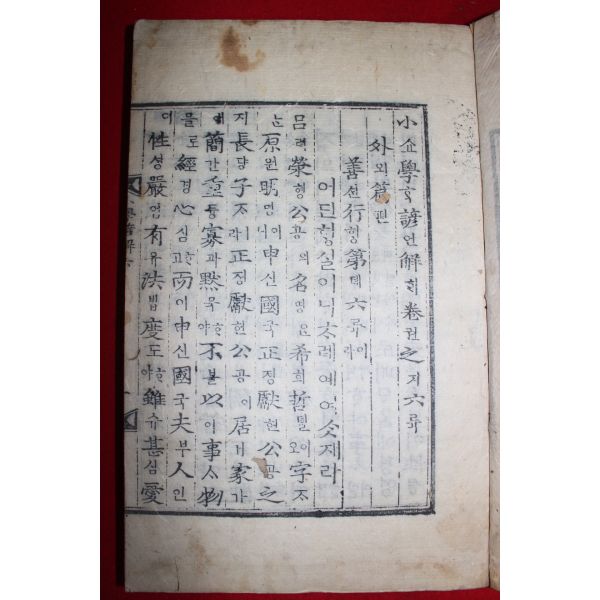 小쇼學ᄒᆞᆨ諺언解ᄒᆡ卷권之지六륙
外외篇편
善션行ᄒᆡᆼ第뎨六륙이라
어딘ᄒᆡᆼ실이니ᄎᆞ례예여ᄉᆞᆺ재라
呂려滎형公공의名명은希희哲텰이오字ᄌᆞ
ᄂᆞᆫ原원明명이니申신國국正졍獻헌公공之
지長댱子ᄌᆞㅣ라正졍獻헌公공이居거家가
에簡간重듕寡과默믁ᄒᆞ야不불以이事ᄉᆞ物
믈로經경心심ᄒᆞ고而이申신國국夫부人인
이性셩嚴엄有유法법度도ᄒᆞ야雖슈甚심愛